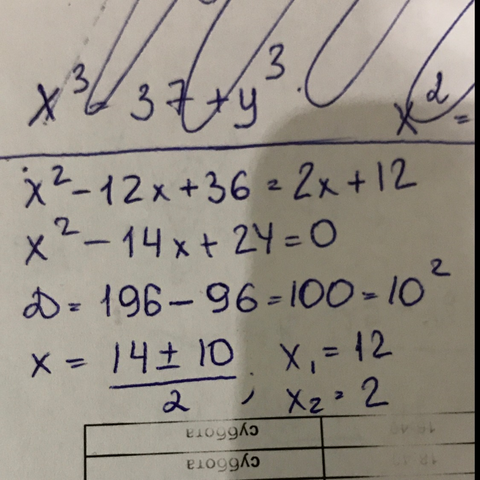 x³ = 37 + y³. x² =
x² - 12x + 36 = 2x + 12
x² - 14x + 24 = 0
D = 196 - 96 = 100 = 10²
x = (14 ± 10)/2 ; x₁ = 12
x₂ = 2
суббота
суббота